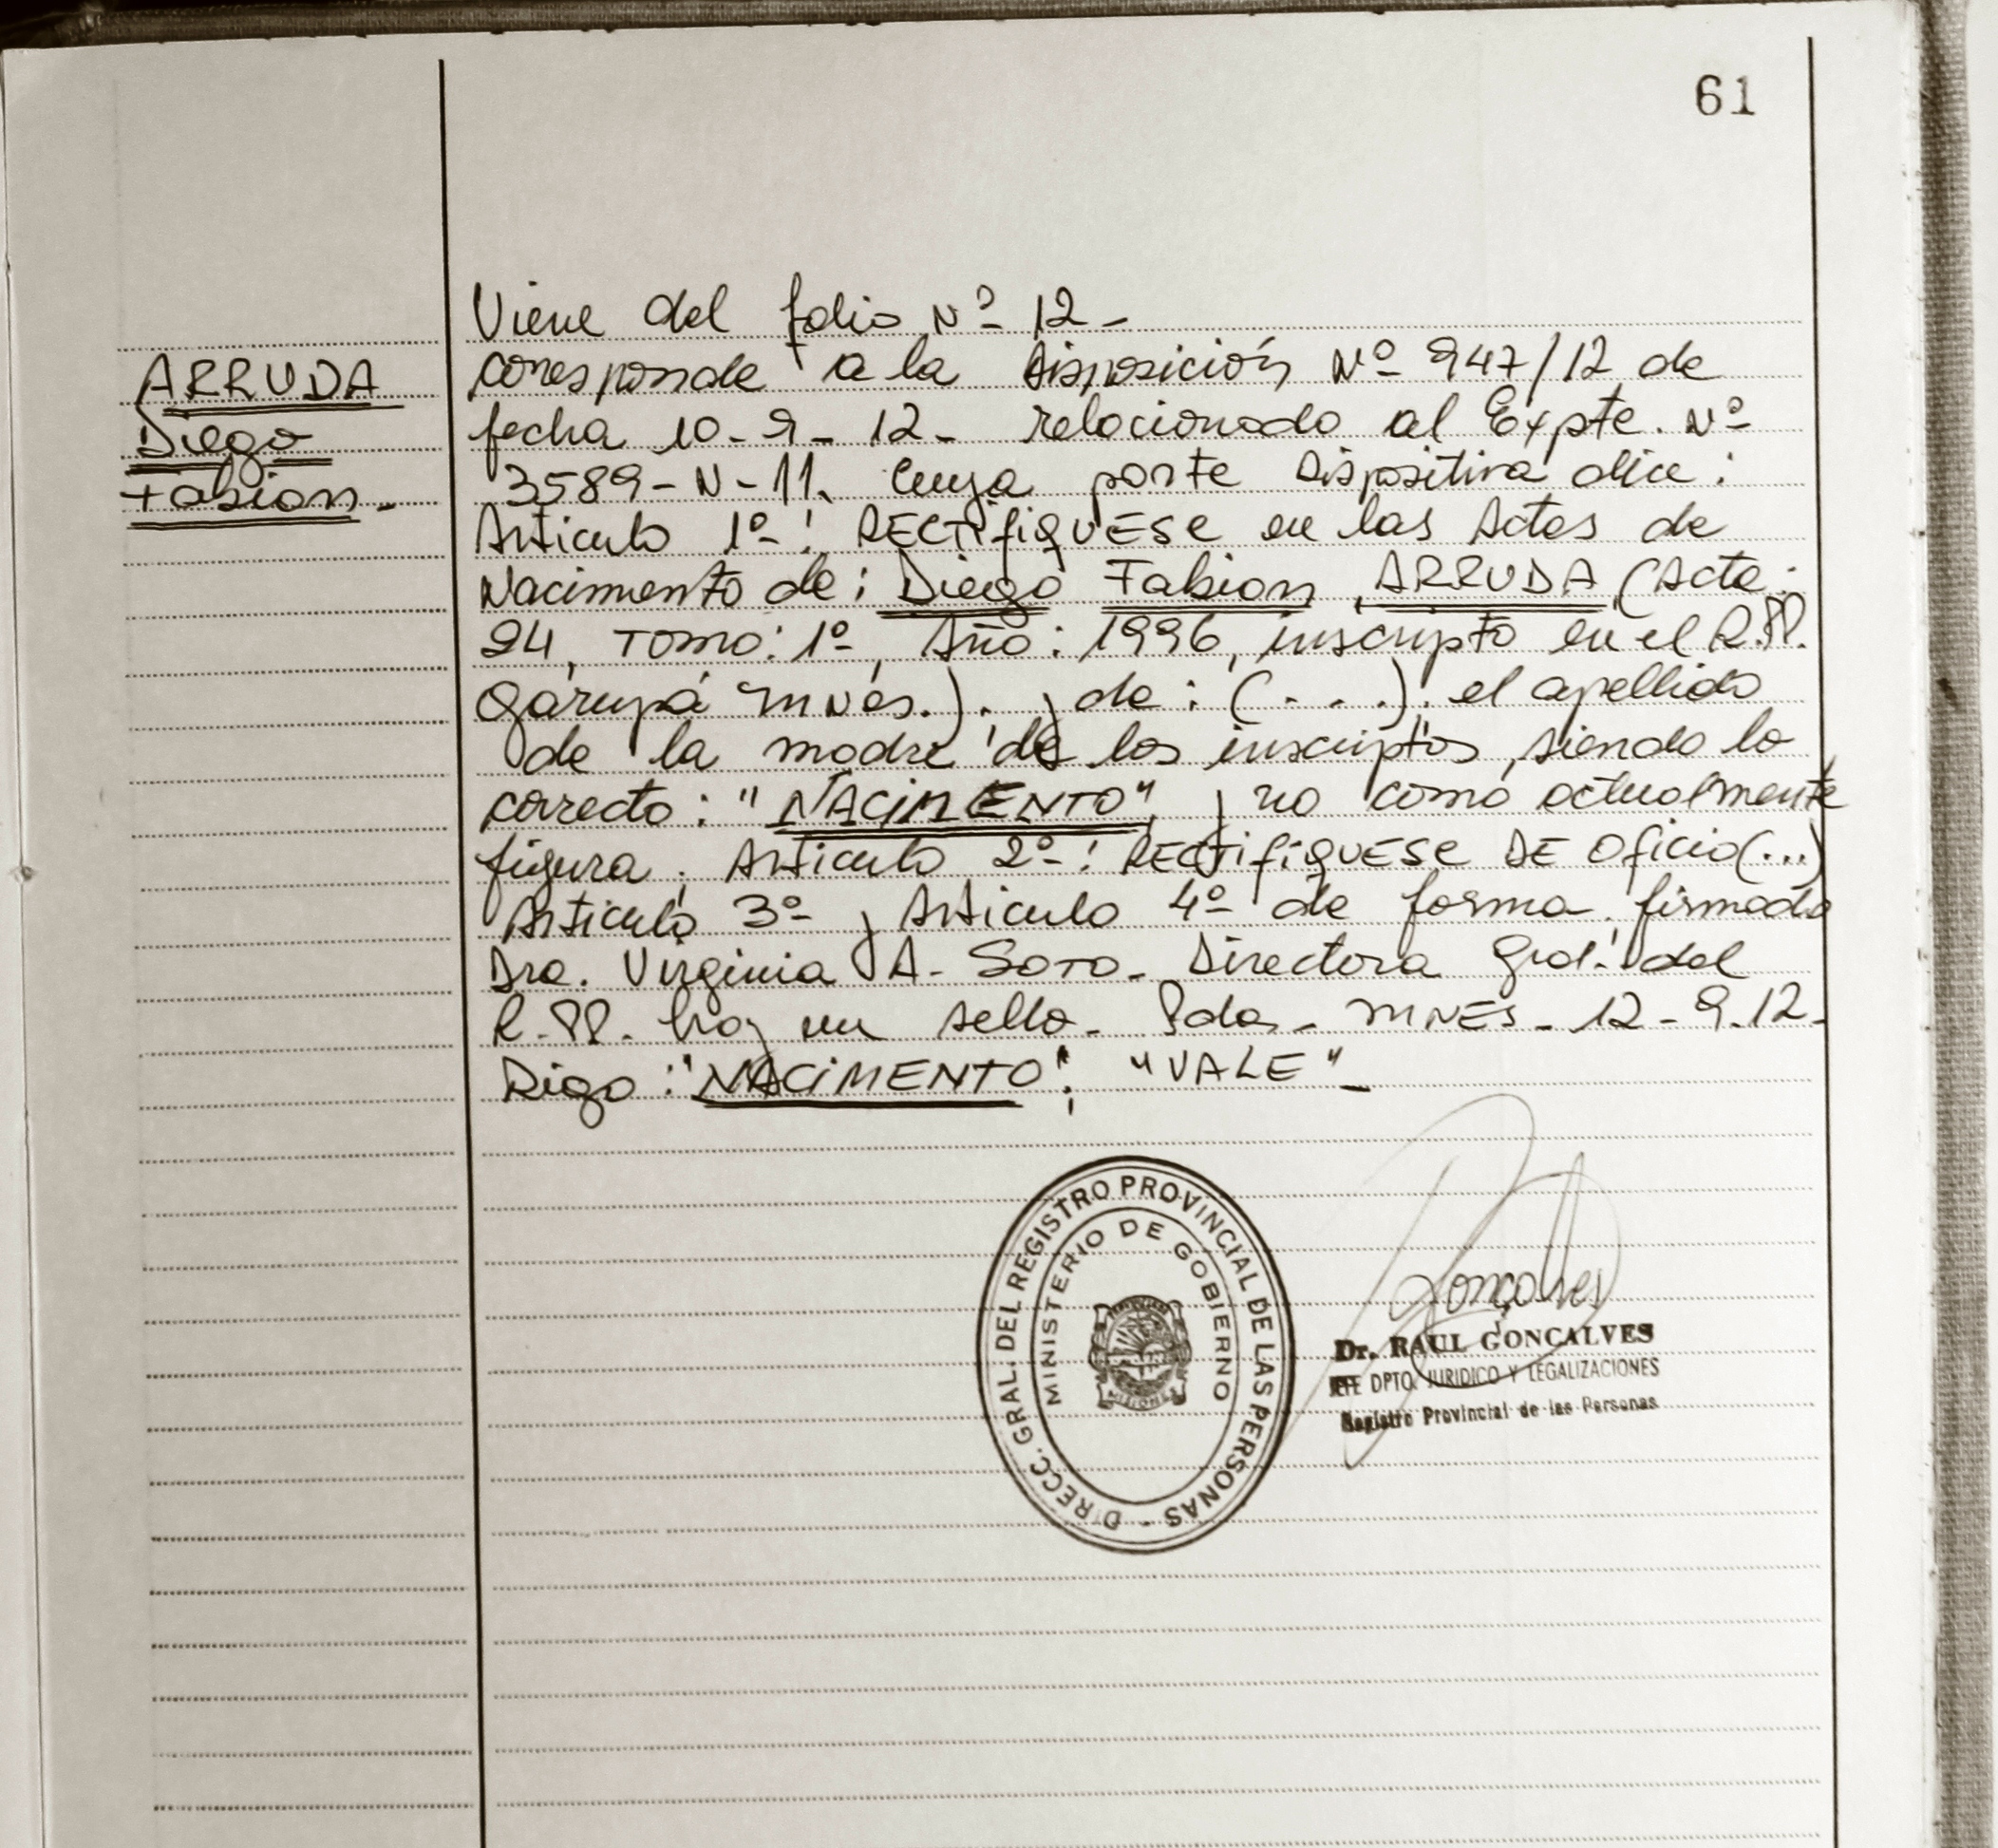 61
Viene del folio Nº 12-
ARRUDA
Diego
Fabian.-
corresponde a la Disposición Nº 947/12 de
fecha 10-9-12- relacionado al Expte. Nº
3589-N-11. Cuya parte Dispositiva dice:
Articulo 1º: RECTifiQUESE en las Actas de
Nacimento de: Diego Fabian ARRUDA (Acta:
24, Tomo: 1º, Año: 1996, inscripto en el R.PP.
Garupá Mnes.). y de: (...). el apellido
de la madre de los inscriptos, siendo lo
correcto: "NACIMENTO", y no como actualmente
figura. Articulo 2º: RECTifiQUESE DE Oficio(...)
Articulo 3º y Articulo 4º de forma. firmado
Dra. Virginia A. Soto- Directora Gral. del
R.PP. hay un sello- Pdas- MNES- 12-9-12-
Digo: "NACIMENTO"; "VALE"-
DIRECC. GRAL. DEL REGISTRO PROVINCIAL DE LAS PERSONAS -
MINISTERIO DE GOBIERNO
MISIONES
Gonçalves
Dr. RAUL GONCALVES
JEFE DPTO. JURIDICO Y LEGALIZACIONES
Registro Provincial de las Personas